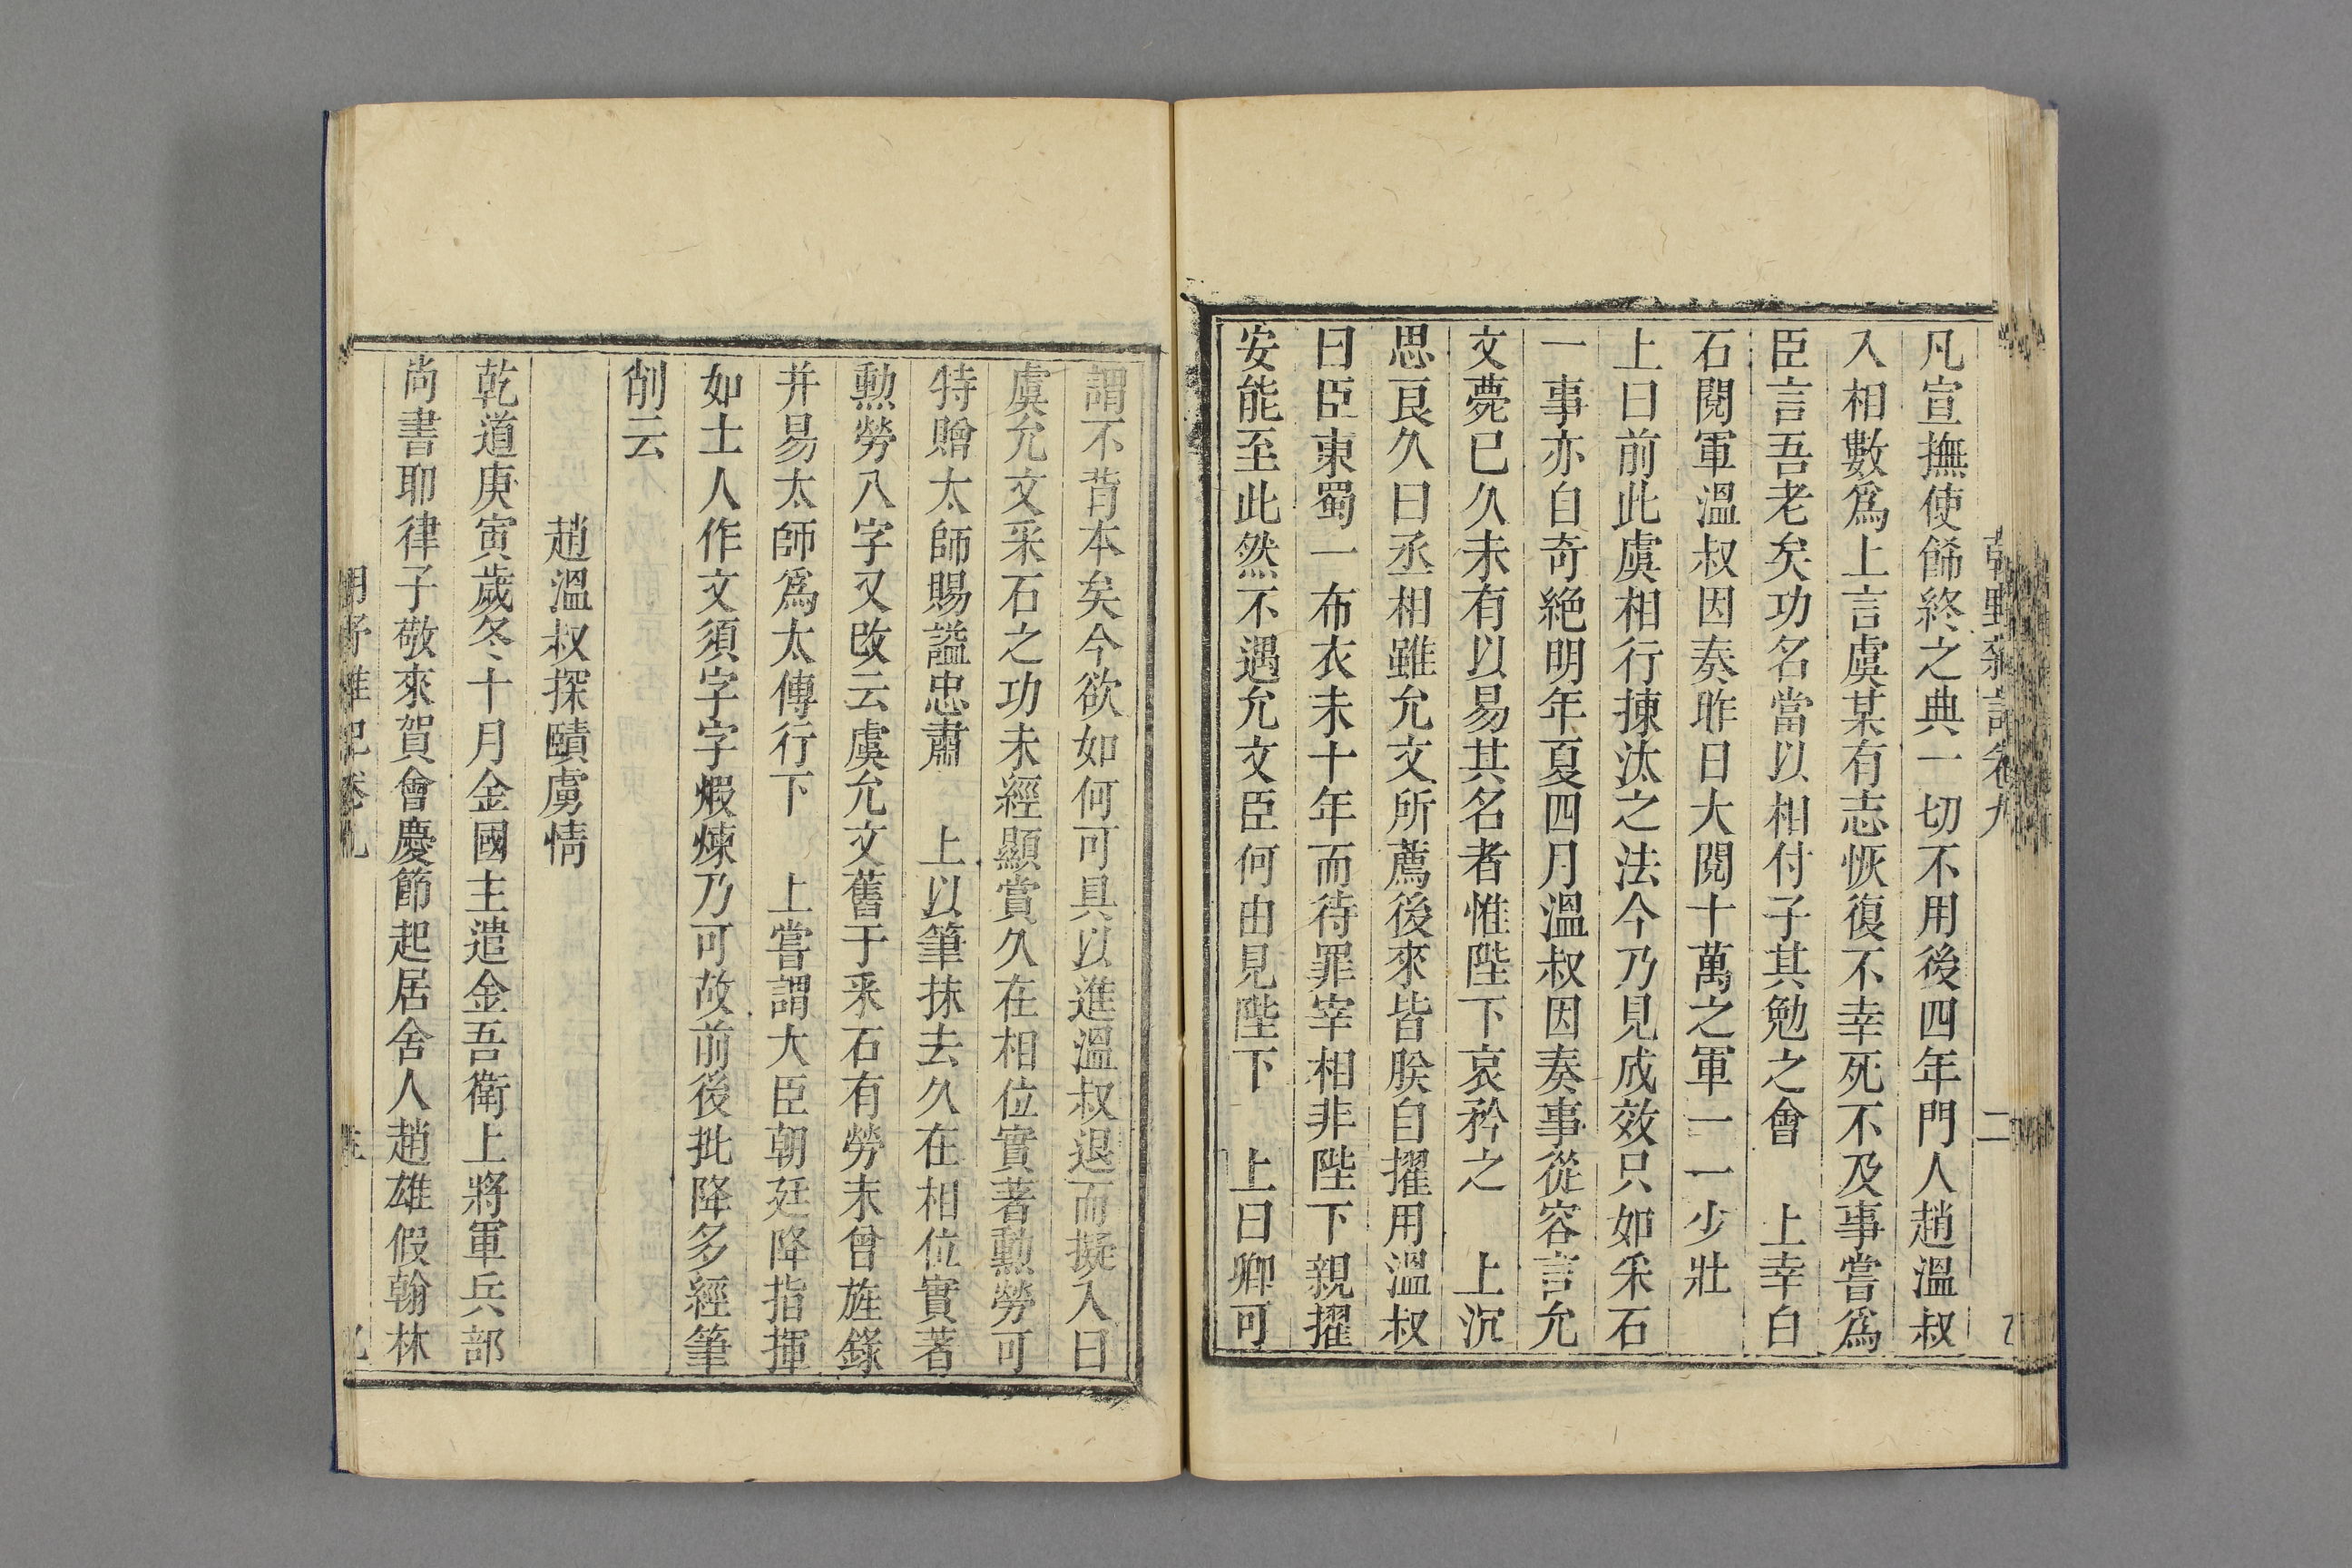 凡宣撫使飾終之典一切不用後四年門人趙溫叔
入相數爲上言虞某有志恢復不幸死不及事嘗爲
臣言吾老矣功名當以相付子其勉之會　上幸白
石閱軍溫叔因奏昨日大閱十萬之軍一一少壯
上曰前此虞相行揀汰之法今乃見成效只如采石
一事亦自奇絶明年夏四月溫叔因奏事從容言允
文薨已久未有以易其名者惟陛下哀矜之　上沉
思良久曰丞相雖允文所薦後來皆朕自擢用溫叔
曰臣東蜀一布衣未十年而待罪宰相非陛下親擢
安能至此然不遇允文臣何由見陛下　上曰卿可
謂不背本矣今欲如何可具以進溫叔退而擬入曰
虞允文采石之功未經顯賞久在相位實著勲勞可
特贈太師賜謚忠肅　上以筆抹去久在相位實著
勲勞八字又改云虞允文舊于采石有勞未曾旌錄
并易太師爲太傅行下　上嘗謂大臣朝廷降指揮
如士人作文須字字煆煉乃可故前後批降多經筆
削云
趙溫叔探賾虜情
乾道庚寅歲冬十月金國主遣金吾衛上將軍兵部
尚書耶律子敬來賀會慶節起居舍人趙雄假翰林